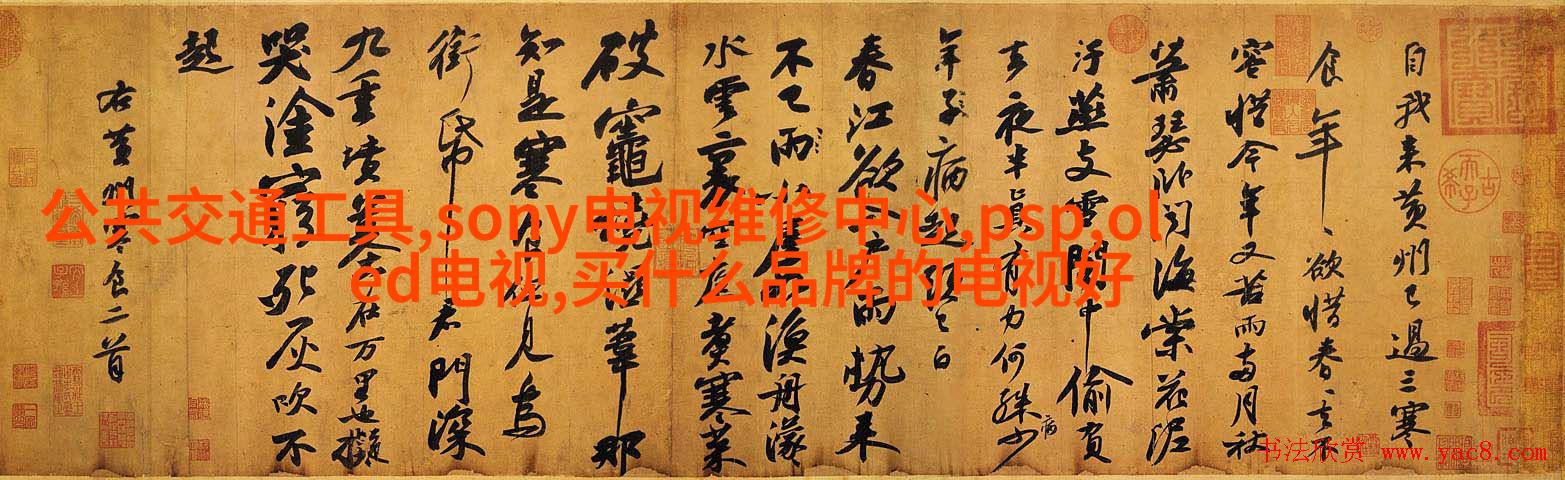 公共交通工具,sony电视维修中心,psp,ol
ed电视,买什么品牌的电视好
自我来黄州已過三寒
食年〻欲惜春〻去不
容惜今年又苦雨兩月秋
蕭瑟卧聞海棠花泥
汙燕支雪闇中偷負
去夜半真有力何殊少
病
年子病起頭已白
春江欲入户雨勢来
不已雨小屋如漁舟濛〻
水雲裏空庖煮寒菜
破竈燒濕葦那
知是寒食但見烏
銜帋君門深
九重墳墓在万里也擬
哭塗窮死灰吹不
起
右黄州寒食二首
书法欣赏 www.yac8.com